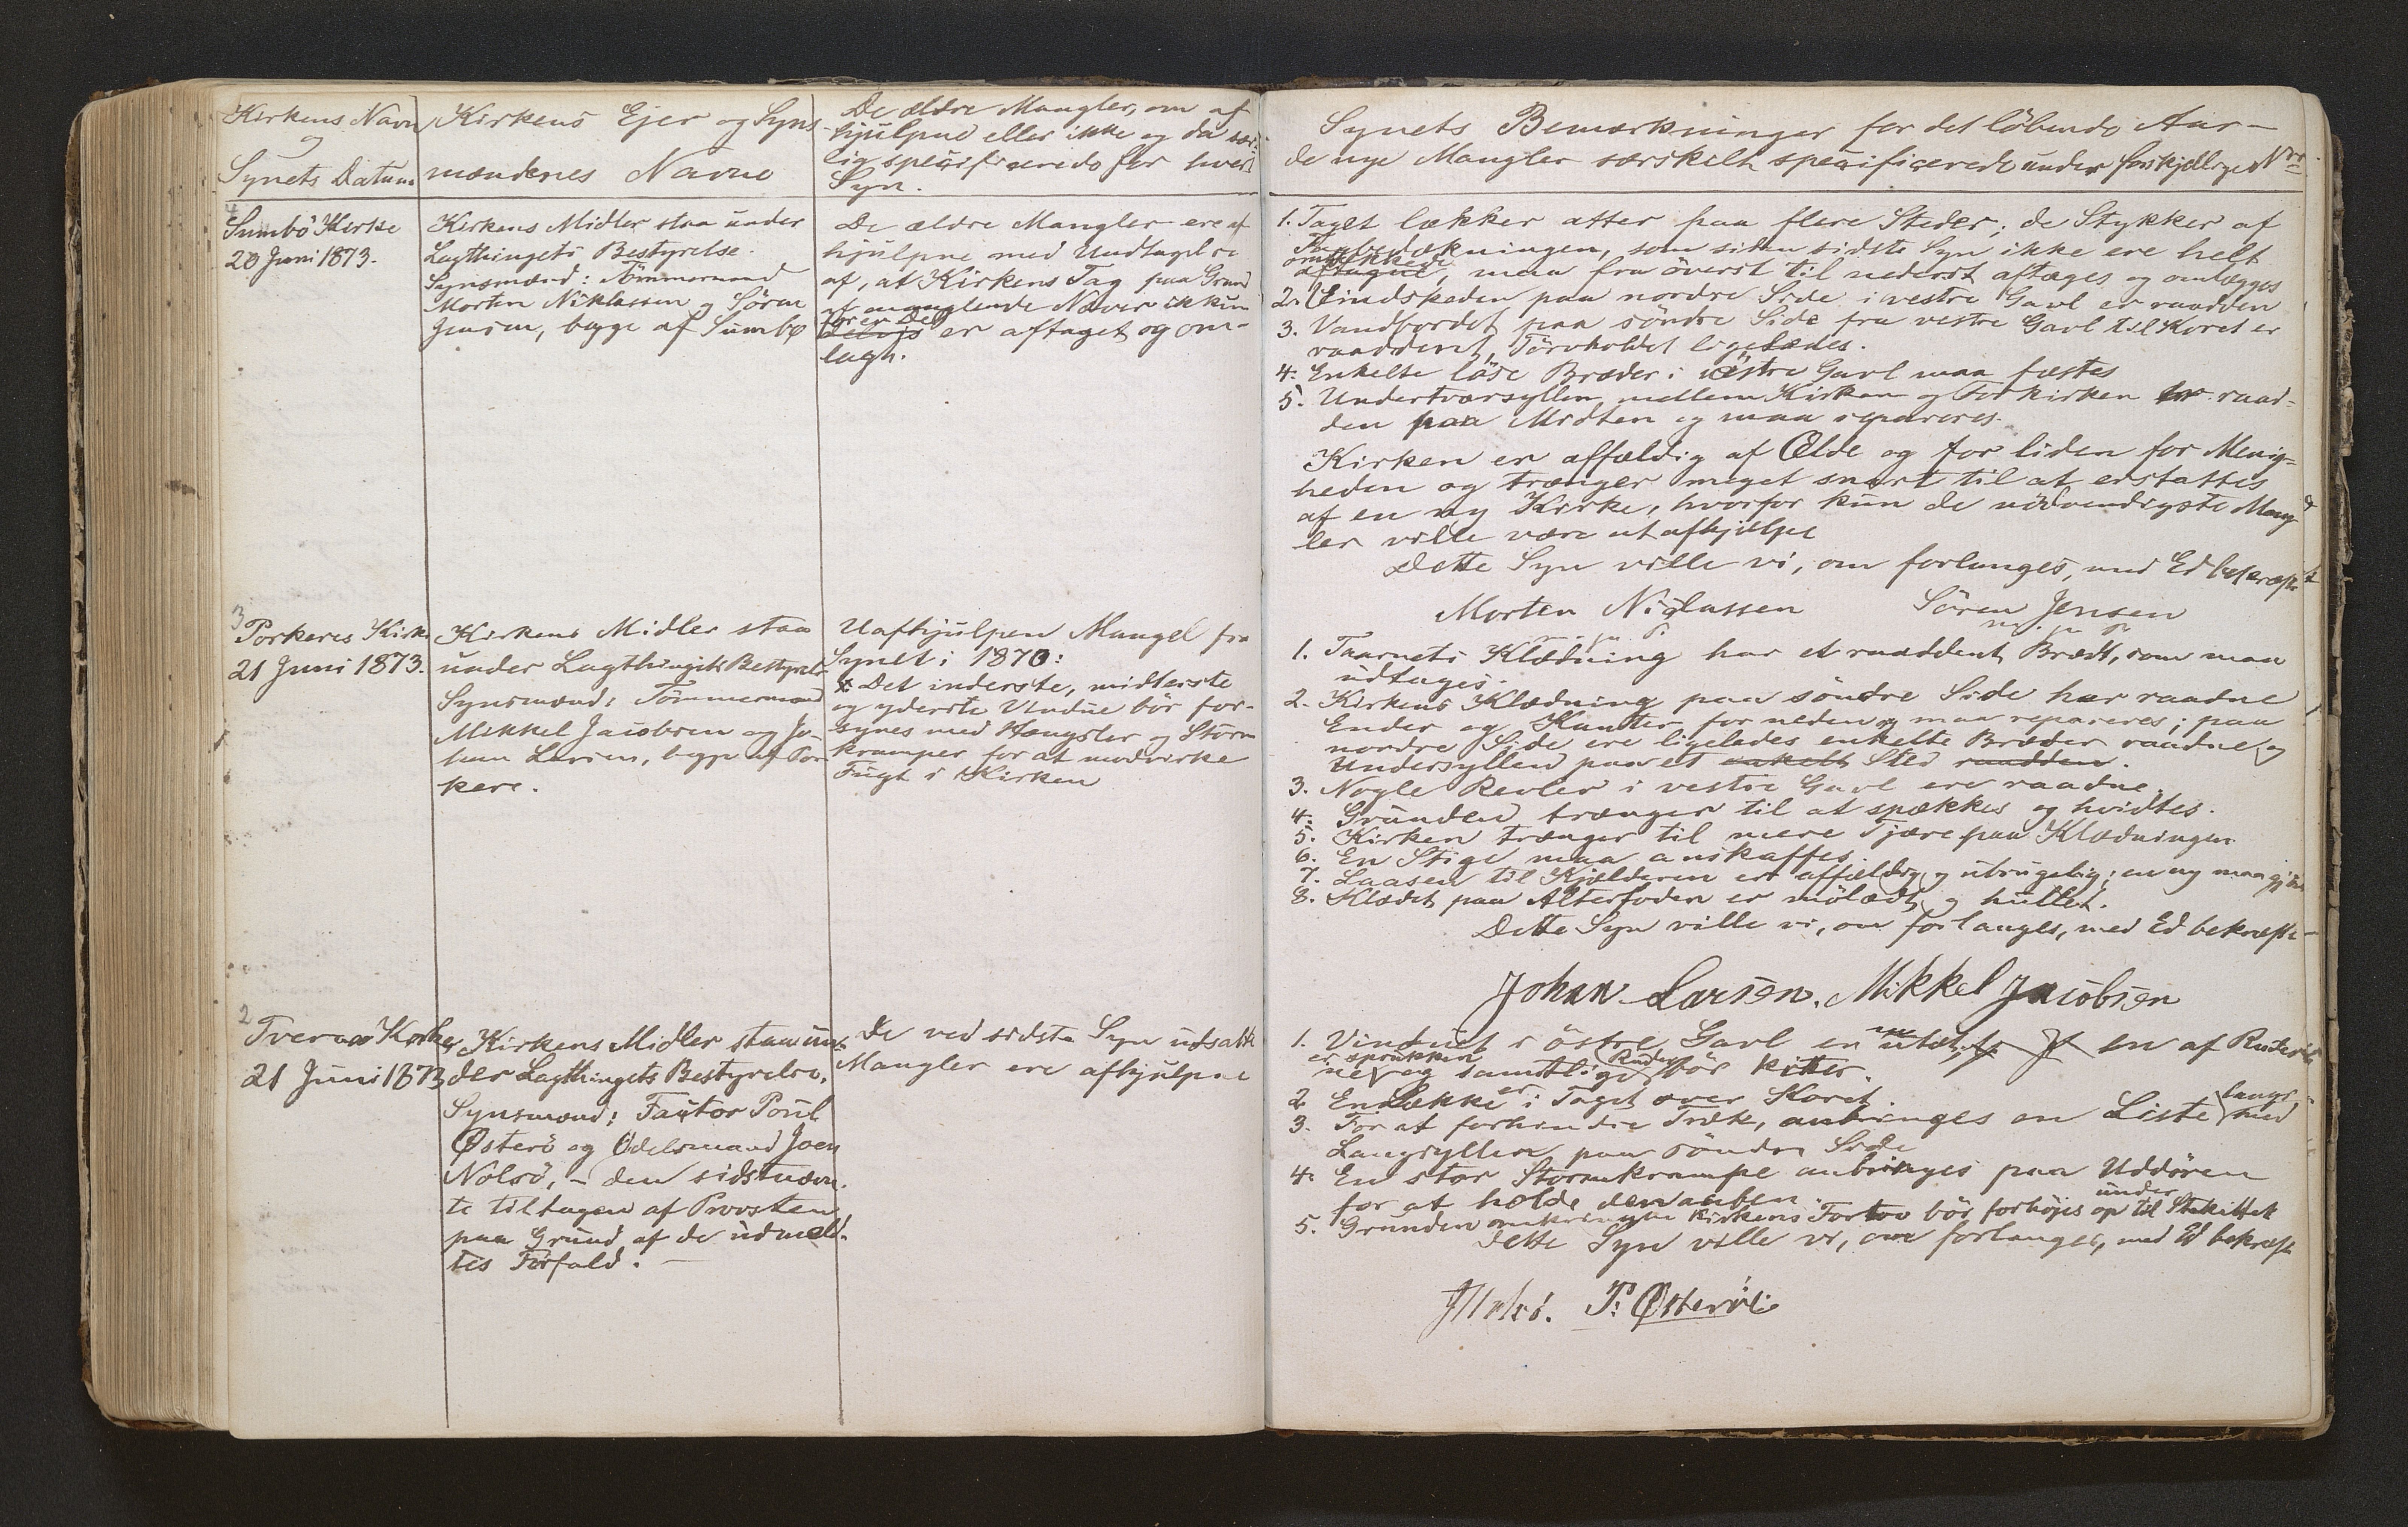 Kirkens Navn
og
Synets Datum
Kirkens Ejer og Syns-
mændenes Navne
De ældre Mangler, om af-
hjulpne eller ikke og da sær-
lig specificerede for hvert
Syn.
4
Sumbö Kirke
20 Juni 1873.
Kirkens Midler staa under
Lagthingets Bestyrelse.
Synsmænd: Tömmermand
Morten Niklassen og Sören
Jensen, begge af Sumbø
De ældre Mangler ere af
hjulpne med Undtagelse
af, at Kirkens Tag paa Grund
af manglende Næver ikkun
for en Del
delvis er aftaget og om-
lagt.
3
Porkeres Kirke
21 Juni 1873.
Kirkens Midler staa
under Lagthingets Bestyrelse
Synsmænd: Tömmermand
Mikkel Jacobsen og Jo-
han Larsen, begge af Por
kere.
Uafhjulpen Mangel fra
Synet i 1870:
Det inderste, midterste
og yderste Vindue bör for-
synes med Hængsler og Storm
kramper for at modvirke
Fugt i Kirken
2
Tveraa Kirke
21 Juni 1873
Kirkens Midler staa un-
der Lagthingets Bestyrelse.
Synsmænd: Factor Poul
Østerö og Odelsmand Joen
Nolsö, – den sidstnævn-
te tiltagen af Provsten
paa Grund af de udmeld-
tes Forfald. –
De ved sidste Syn udsatte
Mangler ere afhjulpne
Synets Bemærkninger for det löbende Aar –
de nye Mangler særskilt specificerede under forskjellige Nr.
1. Taget lækker atter paa flere Steder; de Stykker af
Tagbedækningen, som siden sidste Syn ikke ere helt
omlækkede
aftagne, maa fra överst til nederst aftages og omlægges
2. Vindskeden paa nordre Side i vestre Gavl er raadden
3. Vandbordet paa söndre Side fra vestre Gavl til Koret er
raaddent, Törvholdet ligeledes.
4. Enkelte löse Bræder i östre Gavl maa fæstes
5. Undertværsyllen mellem Kirken og Forkirken er raad-
den paa Midten og maa repareres.
Kirken er affældig af Ælde og for liden for Menig-
heden og trænger meget snart til at erstattes
af en ny Kirke, hvorfor kun de nödvendigste Mang
ler ville være at afhjælpe
Dette Syn ville vi, om forlanges, med Ed bekræfte
Morten Niclassen Sören Jensen
m. f. P. m. f. P.
1. Taarnets Klædning har et raaddent Brædt, som maa
udtages.
2. Kirkens Klædning paa söndre Side har raadne
Ender og Kanter for neden og maa repareres; paa
nordre Side ere ligeledes enkelte Bræder raadne og
Undersyllen paa et enkelt Sted raadden.
3. Nogle Revler i vestre Gavl ere raadne.
4. Grunden trænger til at spækkes og hvidtes.
5. Kirken trænger til mere Tjære paa Klædningen
6. En Stige maa anskaffes.
7. Laasen til Kjælderen er affældig og ubrugelig; en ny maa
8. Klædet paa Alterfoden er mölædt og hullet.
Dette Syn ville vi, om forlanges, med Ed bekræfte –
Johan Larsen. Mikkel Jacobsen
1. Vinduet i östre Gavl er utæt, en af Ruder
er sprukken Ruder
ne og samtlige bör kittes.
2. En Lække er i Taget over Koret.
3. For at forhindre Træk, anbringes en Liste langs med
Langsyllen paa söndre Side
4. En stor Stormkrampe anbringes paa Uddören
for at holde den aaben.
5. Grunden omkring Kirkens Fortov bör forhöjes op til under Stakittet
Dette Syn ville vi, om forlanges, med Ed bekræfte
JNolsö. P: Østeröe